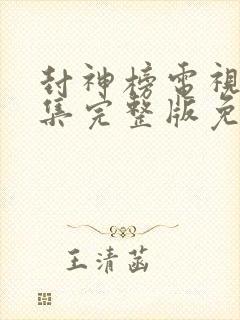 封神榜電視
集完整版免
王清菡